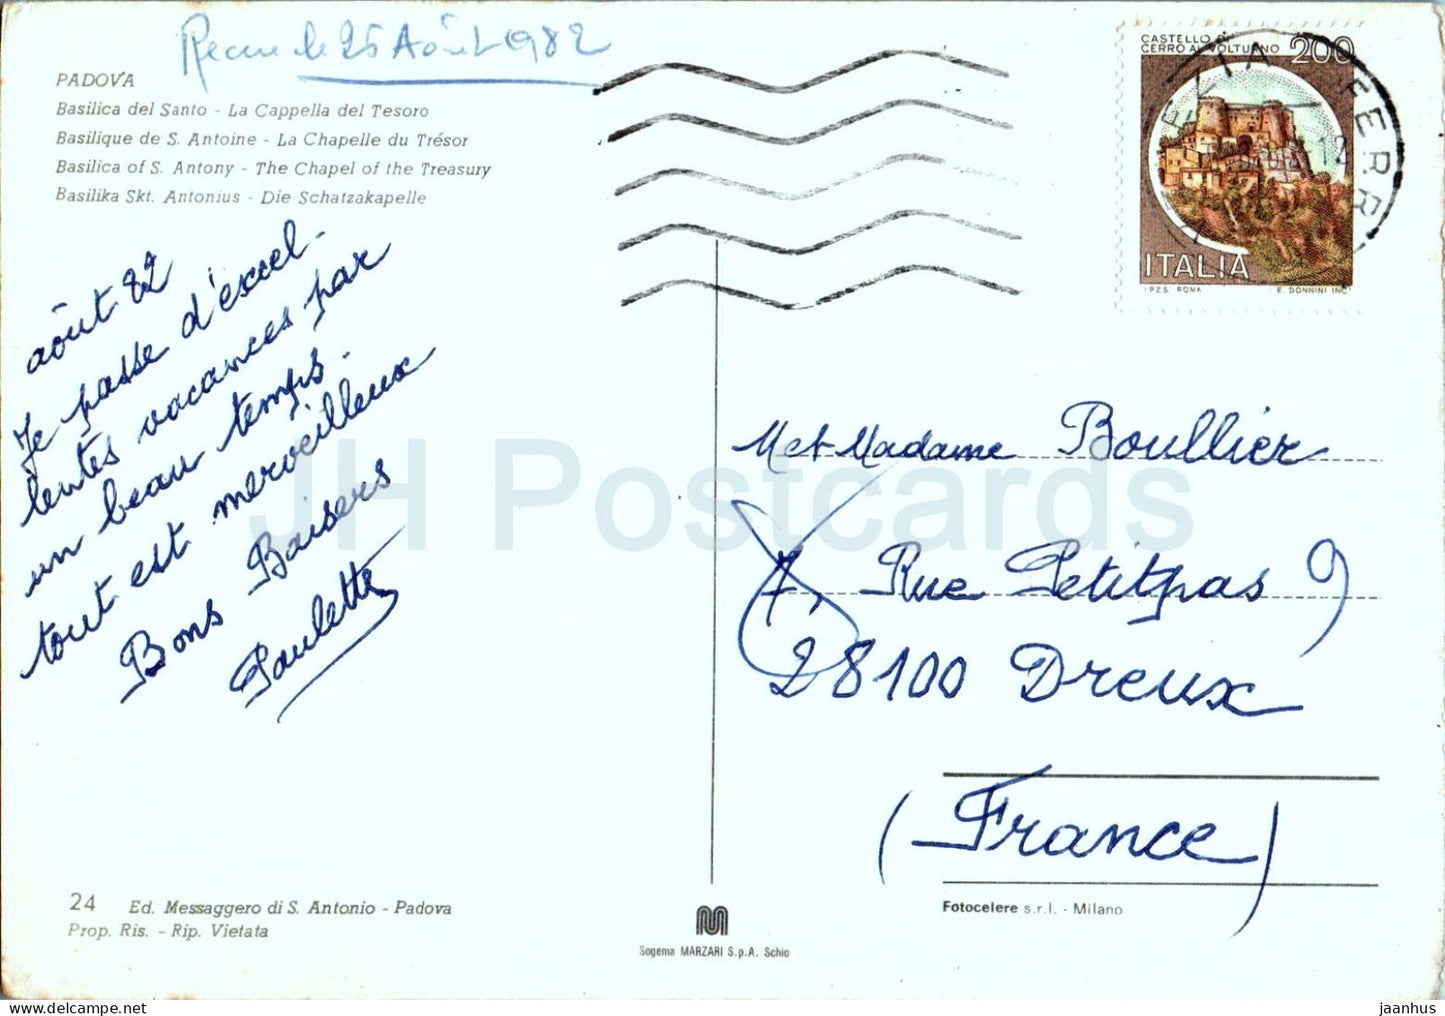 Recu le 25 Août 1982
PADOVA
Basilica del Santo - La Cappella del Tesoro
Basilique de S. Antoine - La Chapelle du Trésor
Basilica of S. Antony - The Chapel of the Treasury
Basilika Skt. Antonius - Die Schatzakapelle
août 82
Je passe d'excel-
lentes vacances par
un beau temps.
tout est merveilleux
Bons Baisers
Paulette
CASTELLO DI
CERRO AL VOLTURNO 200
ITALIA
I.P.Z.S. ROMA E. DONNINI INC.
M et Madame Boullier
Rue Petitpas 9
28100 Dreux
(France)
24 Ed. Messaggero di S. Antonio - Padova
Prop. Ris. - Rip. Vietata
Sogema MARZARI S.p.A. Schio
Fotocelere s.r.l. - Milano
JH Postcards
jaanhus